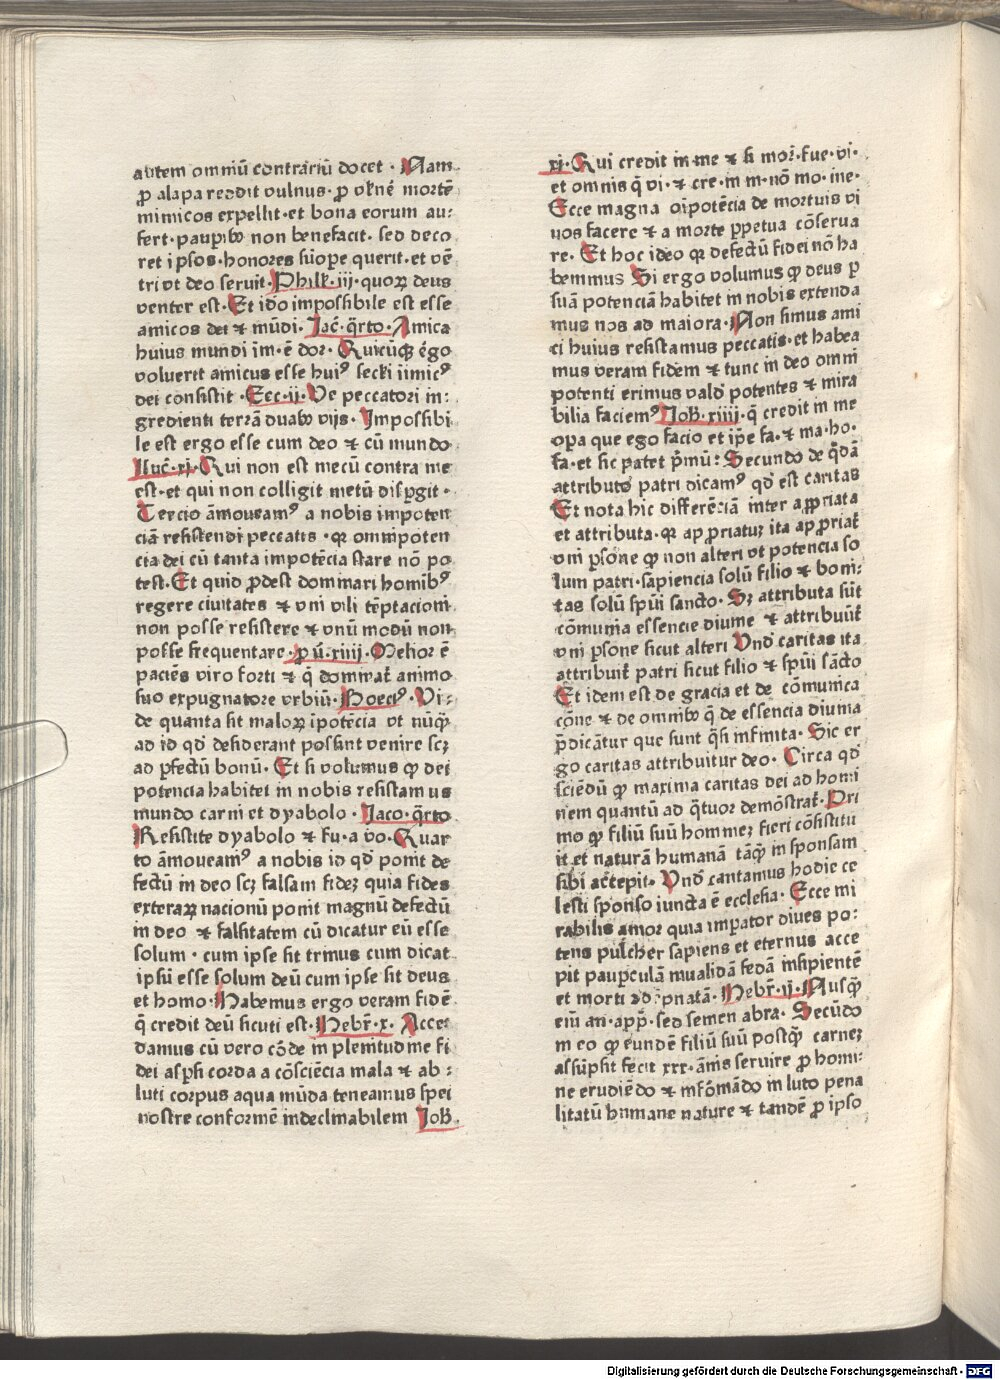 autem omniū contrariū docet · Nam
ꝓ alapa reddit vulnus · ꝓ vłne mortē
inimicos expellit · et bona eorum au⸗
fert · pauꝑibꝫ non benefacit · sed deco
ret ipsos · honores suꝑpe querit · et vē
tri vt deo seruit · Philiꝑ · iij · quoꝝ deus
venter est · Et ido impossibile est esse
amicos dei ⁊ mūdi · Jac̄ · q̄rto · Amica
huius mundi im · ē do2 · Quicūqꝫ ēgo
voluerit amicus esse huiꝰ secłi iimicꝰ
dei consistit · Ecc · ij · Ve peccatori in⸗
gredienti terrā duabꝫ vijs · Impossibi
le est ergo esse cum deo ⁊ cū mundo
Luc̄ · xj · Qui non est mecū contra me
est · et qui non colligit metū disꝑgit ·
Tercio āmoueamꝰ a nobis impoten
ciā resistendi peccatis · qꝛ omnipoten
cia dei cū tanta impotēcia stare nō po
test · Et quid ꝓdest dominari homibꝰ
regere ciuitates ⁊ vni vili tēptacioni
non posse resistere ⁊ vnū modū non
posse frequentare · ꝓ ū · xiiij · Melior ē
paciēs viro forti ⁊ q̄ dominat̄ animo
suo expugnatore vrbiū · Boeciꝰ · Vi⸗
de quanta sit maloꝝ ipotēcia vt nūq̄
ad id qd̄ desiderant possint venire scꝫ
ad ꝑfectū bonū · Et si volumus ꝙ dei
potencia habitet in nobis resistamus
mundo carni et dyabolo · Jaco · q̄rto
Resistite dyabolo ⁊ fu · a vo · Quar
to āmoueamꝰ a nobis id qd̄ ponit de
fectū in deo scꝫ falsam fideꝫ quia fides
exteraꝝ nacionū ponit magnū defectū
in deo ⁊ falsitatem cū dicatur eū esse
solum · cum ipse sit trinus cum dicat
ipsū esse solum deū cum ipse sit deus
et homo · Habemus ergo veram fidē
q̄ credit deū sicuti est · Hebr̄ · x · Acce⸗
damus cū vero cōde in plenitudine fi
dei asꝑsi corda a cōsciēcia mala ⁊ ab⸗
luti corpus aqua mūda teneamus spei
nostre confomē indeclinabilem Joh̄
xj · Qui credit in me ⁊ si mo2 · fue · vi ·
et omnis q̄ vi · ⁊ cre · in m · nō mo · ine ·
Ecce magna oīpotēcia de mortuis vi
uos facere ⁊ a morte ꝑpetua cōserua
re · Et hoc ideo qꝛ defectū fidei nō ha
bemmus Si ergo volumus ꝙ deus ꝑ
suā potenciā habitet in nobis extenda
mus nos ad maiora · Non simus ami
ci huius resistamus peccatis · et habea
mus veram fidem ⁊ tunc in deo omni
potenti erimus vald̄ potentes ⁊ mira
bilia faciemꝰ Joh̄ · xiiij · q̄ credit in me
oꝑa que ego facio et ip̄e fa · ⁊ ma · ho ·
fa · et sic patet pͥmū: Secundo de q̄dā
attributo patri dicamꝰ qd̄ est caritas
Et nota hic differēciā inter aꝑpriata
et attributa · qꝛ appriatuꝛ ita appriat̄
vni ꝑsone ꝙ non alteri vt potencia so
lum patri · sāpiencia solū filio ⁊ boni⸗
tas solū spūi sancto · Sꝫ attributa sūt
cōmunia essencie diuine ⁊ attribuūt̄
vni ꝑsone sicut alteri Vnd̄ caritas ita
attribuit̄ patri sicut filio ⁊ spūi sācto
Et idem est de gracia et de cōmunica
cōne ⁊ de omnibꝫ q̄ de essencia diuina
p̄dicātur que sunt q̄si infinita · Sic er
go caritas attribuitur deo · Circa qd̄
sciēdū ꝙ maxima caritas dei ad homi
nem quantū ad q̄tuor demōstrat̄ · Pri
mo ꝙ filiū suū homineꝫ fieri cōstitu
it et naturā humanā tāq̄ in sponsam
sibi accepit · Vnd̄ cantamus hodie ce
lesti sponso iuncta ē ecclesia · Ecce mi
rabilis amoꝛ quia imꝑator diues po⸗
tens pulcher sapiens et eternus acce
pit pauꝑculā inualidā fedā insipientē
et morti adipnatā · Hebr̄ · ij · Nusq̄
eīū an · app̄ · sed semen abra · Secūdo
in eo ꝙ eundē filiū suū postq̄ carneꝫ
assūpsit fecit xxx · ānis seruire ꝓ homi⸗
ne erudiēdo ⁊ infōmādo in luto pena
litatū humane nature ⁊ tandē ꝓ ipso
Digitalisierung gefördert durch die Deutsche Forschungsgemeinschaft · DFG